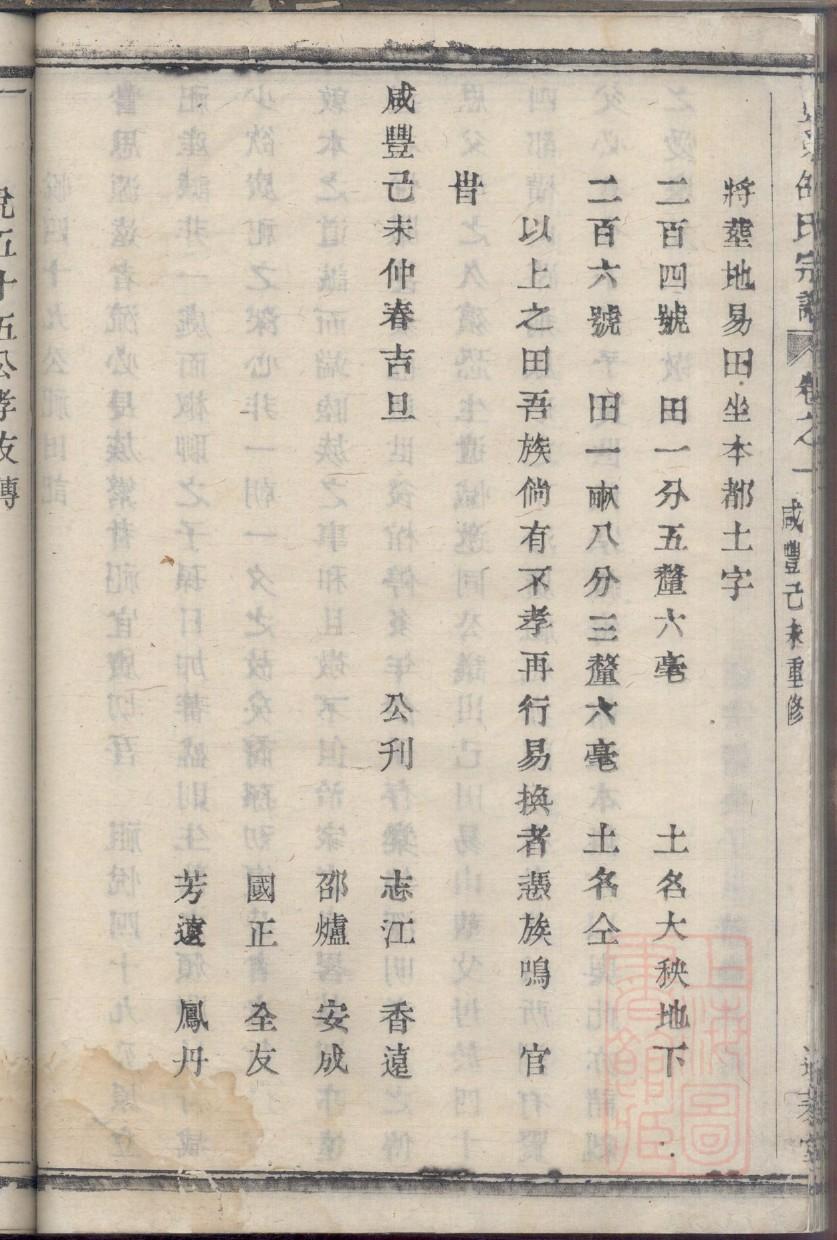 邵氏宗譜 卷之一 咸豐己未重修
將塟地易田坐本都土字
二百四號 田一分五釐六毫 土名大秧地下
二百六號 田一畝八分三釐六毫 土名仝
以上之田吾族倘有不孝再行易換者慿族鳴 官
旹
咸豐己未仲春吉旦 公刋 志江 香遠
邵爐 安成
國正 全友
芳遠 鳳丹
悅五十五公孝友傳